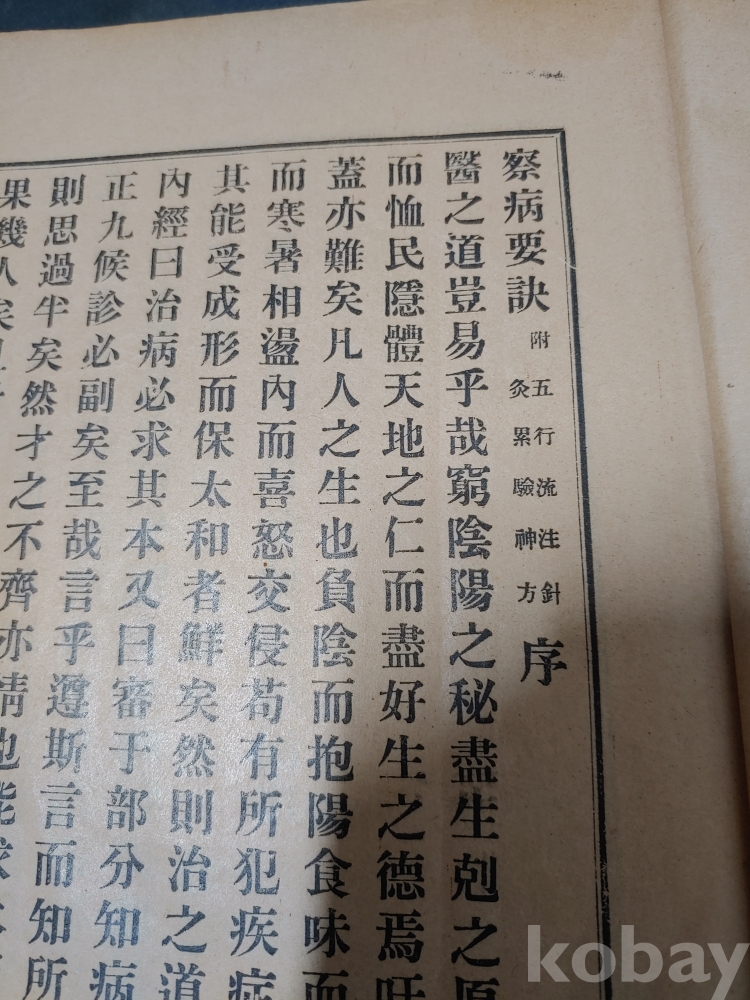 察病要訣 附五行流注針灸累驗神方 序
醫之道豈易乎哉窮陰陽之秘盡生剋之原
而恤民隱體天地之仁而盡好生之德焉吁
蓋亦難矣凡人之生也負陰而抱陽食味而
而寒暑相盪內而喜怒交侵苟有所犯疾症
其能受成形而保太和者鮮矣然則治之道
內經曰治病必求其本又曰審于部分知病
正九候診必副矣至哉言乎遵斯言而知所
則思過半矣然才之不齊亦情也能求
果幾人矣
kobay